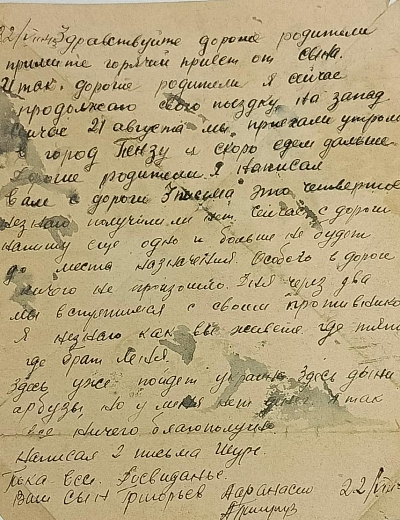 22/VIII 43 Здравствуйте дорогие родители
примите горячий привет от сына.
Итак, дорогие родители я сейчас
продолжаю свою поездку на запад
сейчас 21 августа мы приехали утром
в город Пензу и скоро едем дальше.
Дорогие родители. Я написал
вам с дороги 3 письма это четвертое
незнаю получили ли нет. Сейчас с дороги
напишу еще одно и больше не будет
до места назначения. Особого в дороге
ничего не произошло. Дня через два
мы вступимся с своим противнико
Я незнаю как вы живете где тятя
где брат Леня.
Здесь уже пойдет Здесь дыни
арбузы, но у меня нет денег и так
все ничего благополучно
Написал 2 письма Шуре.
Пока все. Досвиданье.
Ваш сын Григорьев 22/VIII